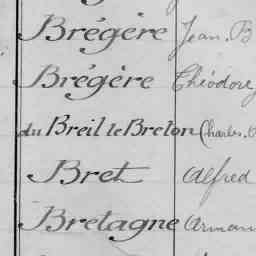 Brégère Jean, B
Brégère Théodore
du Breil le Breton Charles,
Bret Alfred
Bretagne Arman